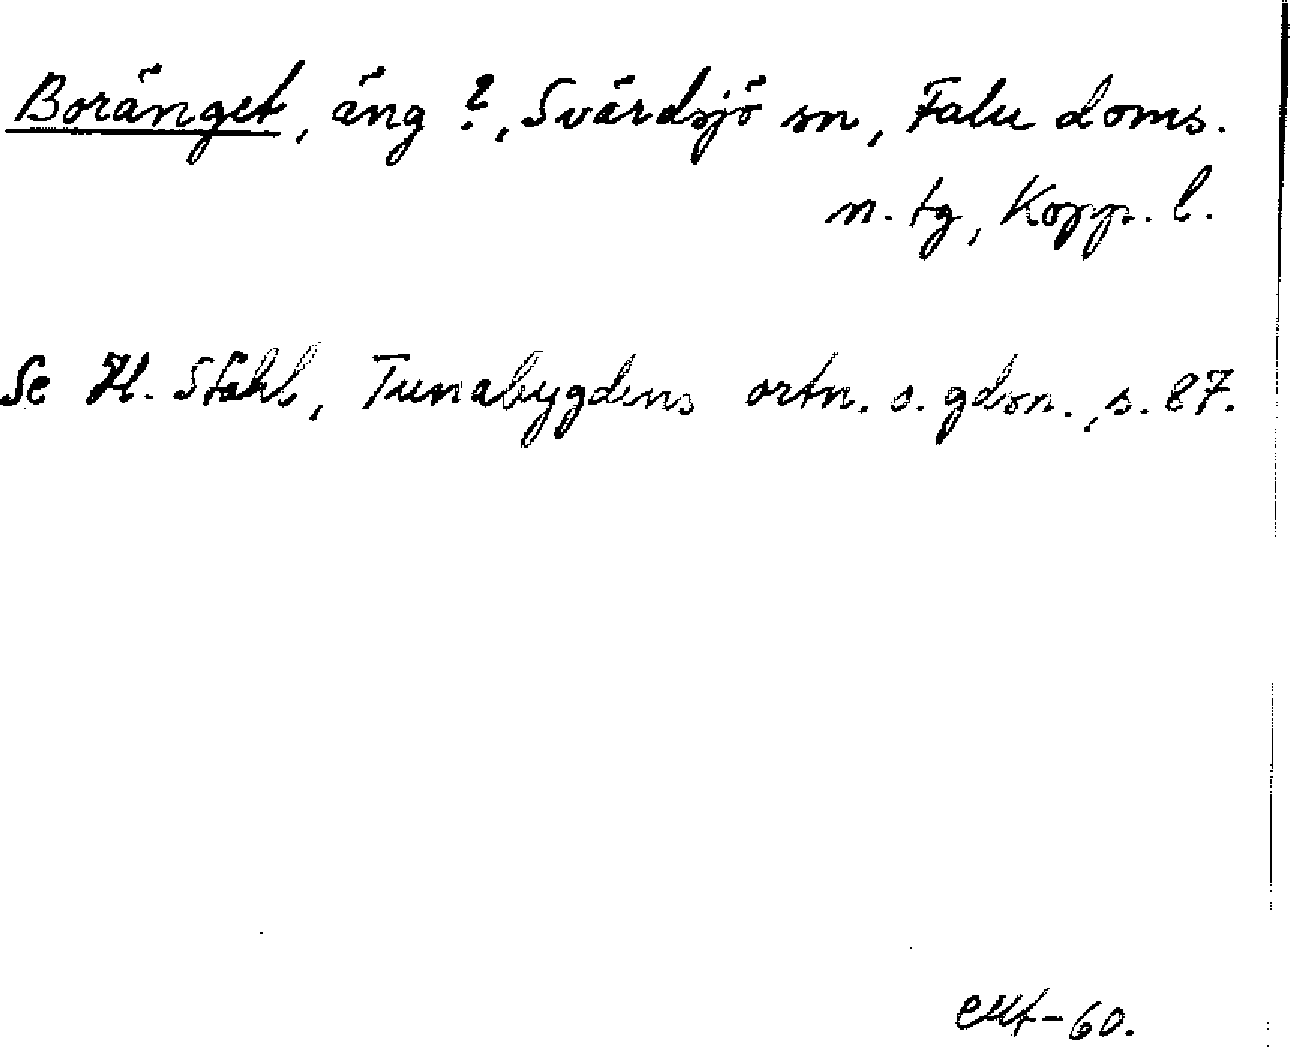 Boränget, äng ?, Svärdsjö sn, Falu doms.
n. tg, Kopp. l.
Se H. Ståhl, Tunabygdens ortn. o. gdsn., s. 87.
-60.